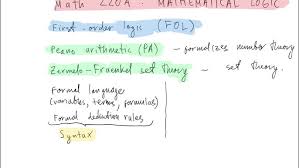 Math 220A: MATHEMATICAL LOGIC
First-order logic (FOL)
Peano arithmetic (PA) – formalizes number theory
Zermelo-Fraenkel set theory – set theory.
Formal language
(variables, terms, formulas)
Formal deduction rules
Syntax